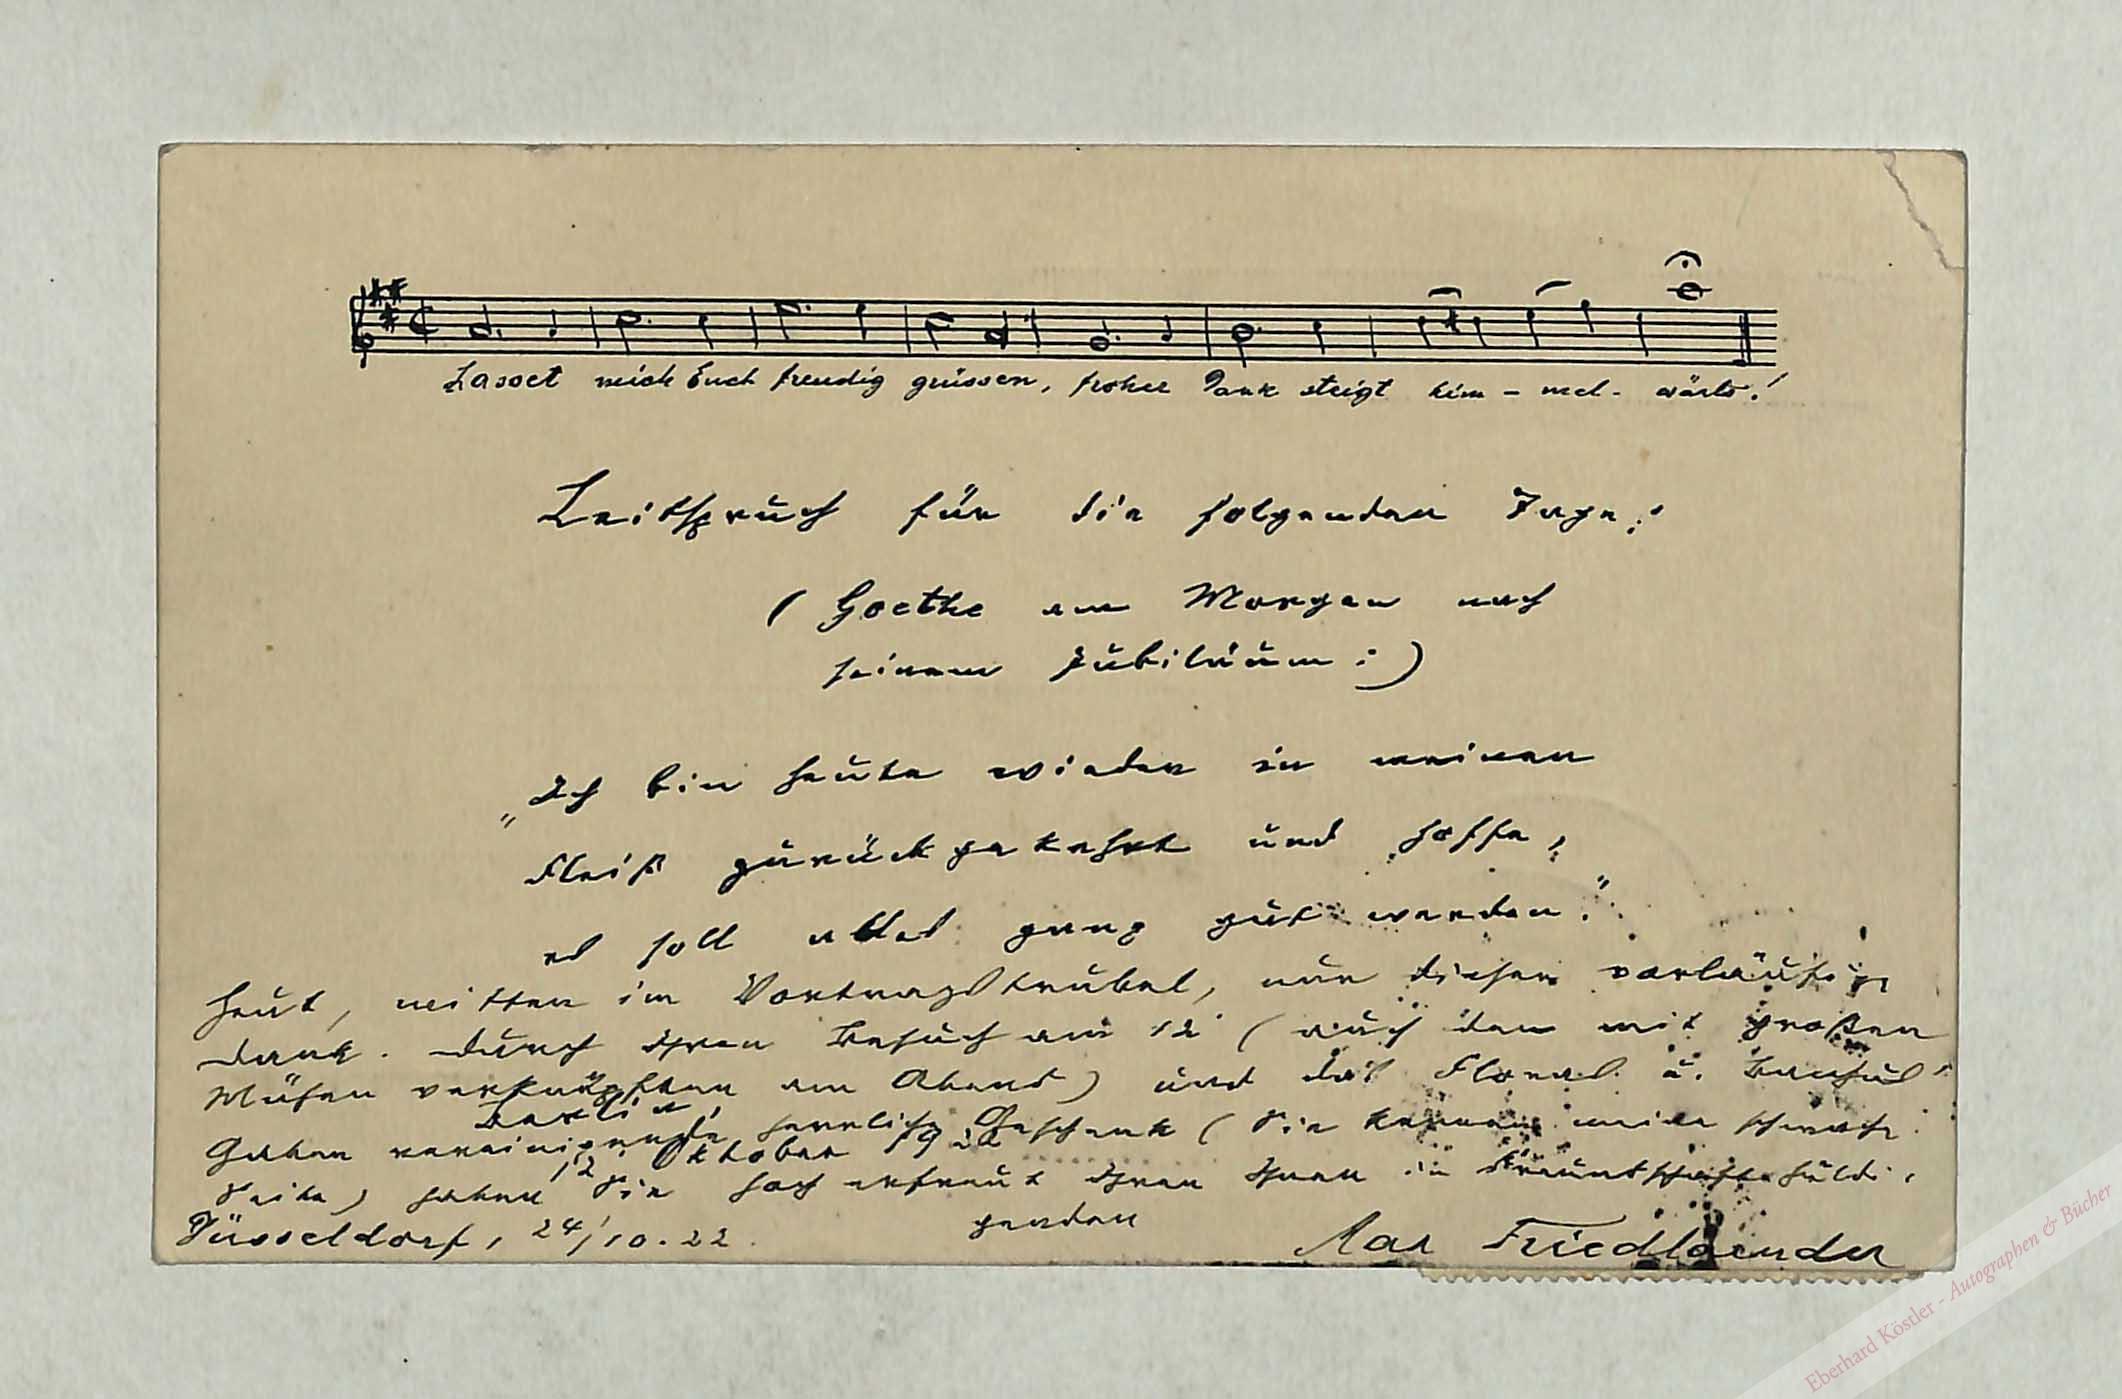 Lasset mich Euch freudig grüssen, froher Dank steigt him - mel - wärts!
Leitspruch für die folgenden Tage:
(Goethe am Morgen nach
seinem Jubiläum:)
„Ich bin heute wieder in meinen
Fleiß zurückgekehrt und hoffe,
es soll alles ganz gut werden."
Heut, mitten im Vortragstrubel, nur diesen vorläufigen
Dank. Durch Ihren Besuch am 12 (auch den mit großen
Mühen verknüpften am Abend) und das Floras u. Bacchus'
Gaben vereinigende, herrliche Geschenk (Sie kennen meine schwache
Berlin,
12. Oktober 1922
Seite) haben Sie hoch erfreut Ihren Ihnen in Freundschaft huldi-
genden
Düsseldorf, 24/10.22.
Max Friedlaender
Eberhard Köstler - Autographen & Bücher